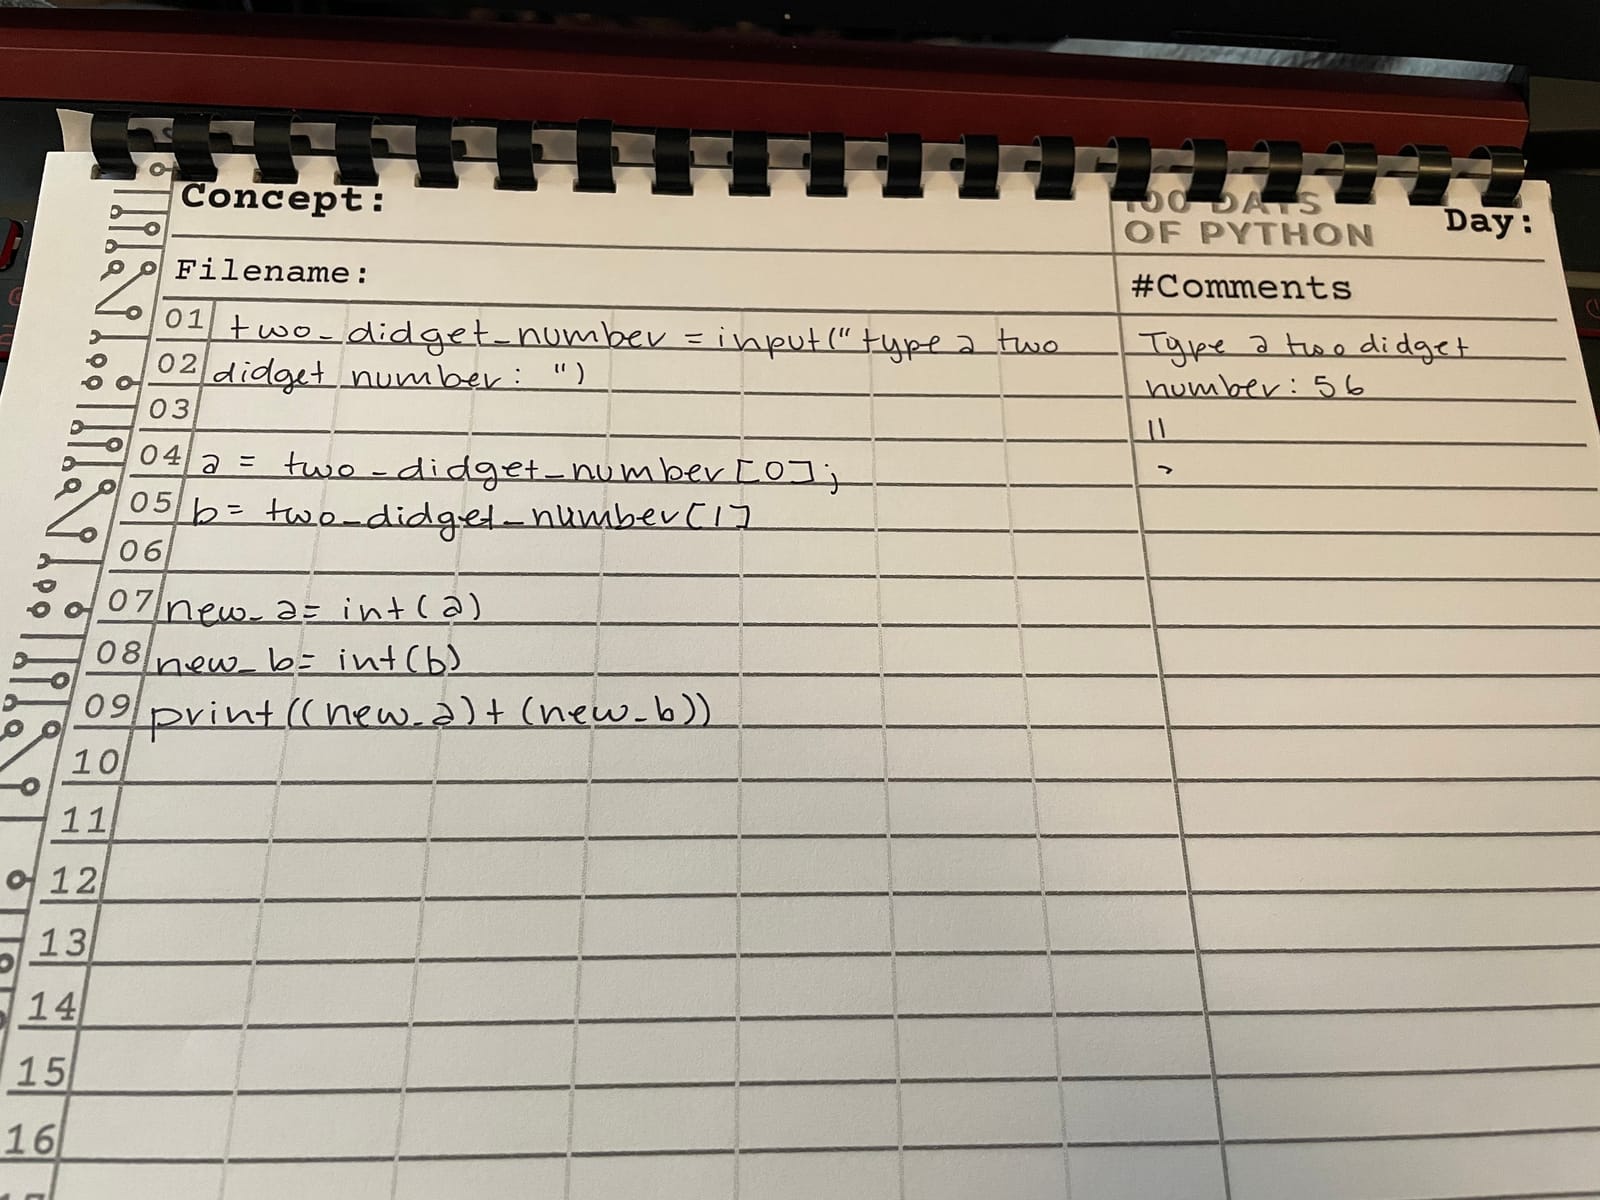 Concept:
100 DAYS
OF PYTHON
Day:
Filename:
#Comments
01 two_didget_number = input("type a two
02 didget number: ")
03
04 a = two_didget_number[0];
05 b= two_didget_number[1]
06
07 new_a= int(a)
08 new_b= int(b)
09 print((new_a)+(new_b))
10
11
12
13
14
15
16
Type a two didget
number: 56
11
>